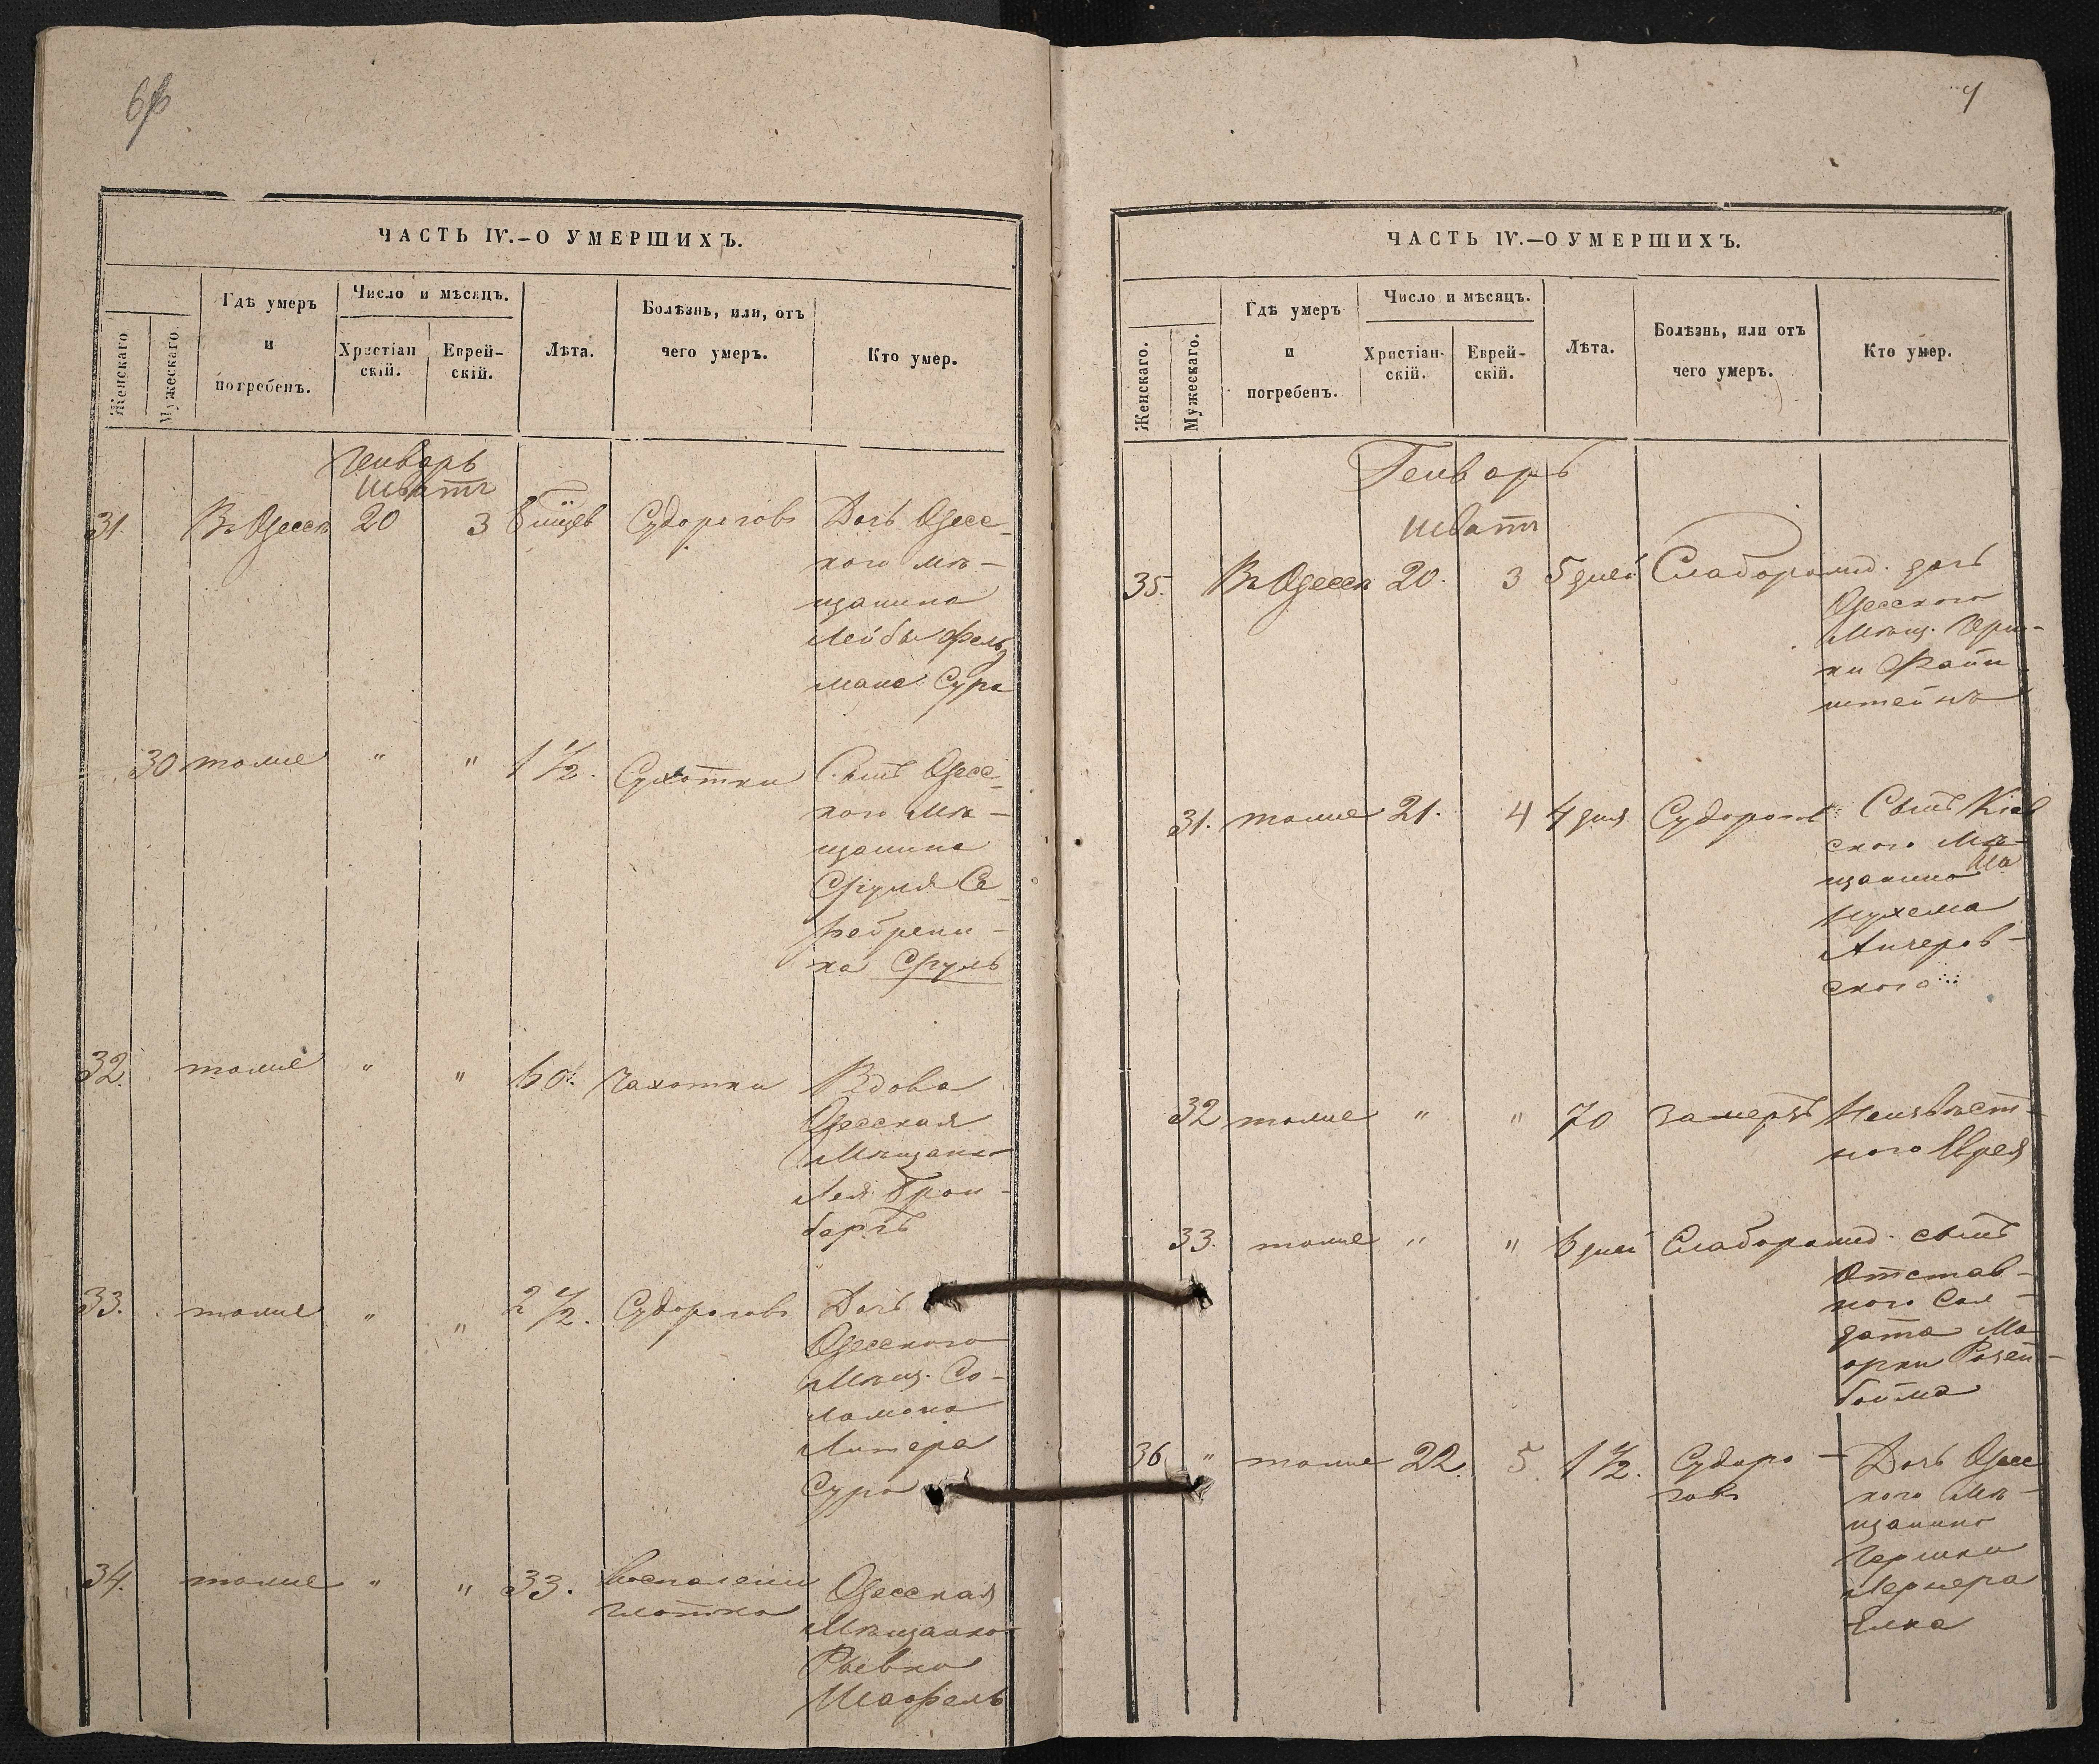 ЧАСТЬ IV.—О УМЕРШИХЪ.
Женскаго
Мужескаго.
Гдѣ умеръ
и
погребенъ.
Число и мѣсяцъ.
Христіан
скій.
Еврей-
скій.
Лѣта.
Болѣзнь, или, отъ
чего умеръ.
Кто умер.
Генварь
Шватъ
31. Въ Одессѣ 20 3 Судороговъ Дочь Одесс-
кого мѣ-
щанина
Лейбы Фель
мана Сура
30 тоже " " 1 1/2. Сухотки Сынъ Одесс-
кого мѣ-
щанина
Сруля Се
ребрени-
ка Сруль
32. тоже " " 60. Чахотки Вдова
Одесская
Мѣщанка
Лея Трон-
бергъ
33. тоже " " 2 1/2. Судороговъ Дочь
Одесского
Мѣщ. Со-
ломона
Литера
Сура
34. тоже " " 33. воспалени Одесская
глотка
Мѣщанка
Рывка
Шафель
ЧАСТЬ IV.—О УМЕРШИХЪ.
Женскаго.
Мужескаго.
Гдѣ умеръ
и
погребенъ.
Число и мѣсяцъ.
Христіан-
скій.
Еврей-
скій.
Лѣта.
Болѣзнь, или отъ
чего умеръ.
Кто умер.
Генварь
Шватъ
35. Въ Одессѣ 20. 3 5 дней Слаборожд. дочь
Одесского
Мѣщ. Герш-
ки Файн
штейнъ
31. тоже 21. 4 4 дня Судорогов Сынъ Кіев
ского Мѣ-
щанина
Нухема
Анчеров-
ского
32 тоже " " 70 замерзъ Неизвѣст-
ного Еврея
33. тоже " " 6 дней Слаборожд. сынъ
Отстав-
ного Сол-
дата Ма
орки Розен-
бойма
36 " тоже 22. 5. 1 1/2. Судоро- Дочь Одесс
говъ кого мѣ-
щанина
Гершки
Лернера
Елка